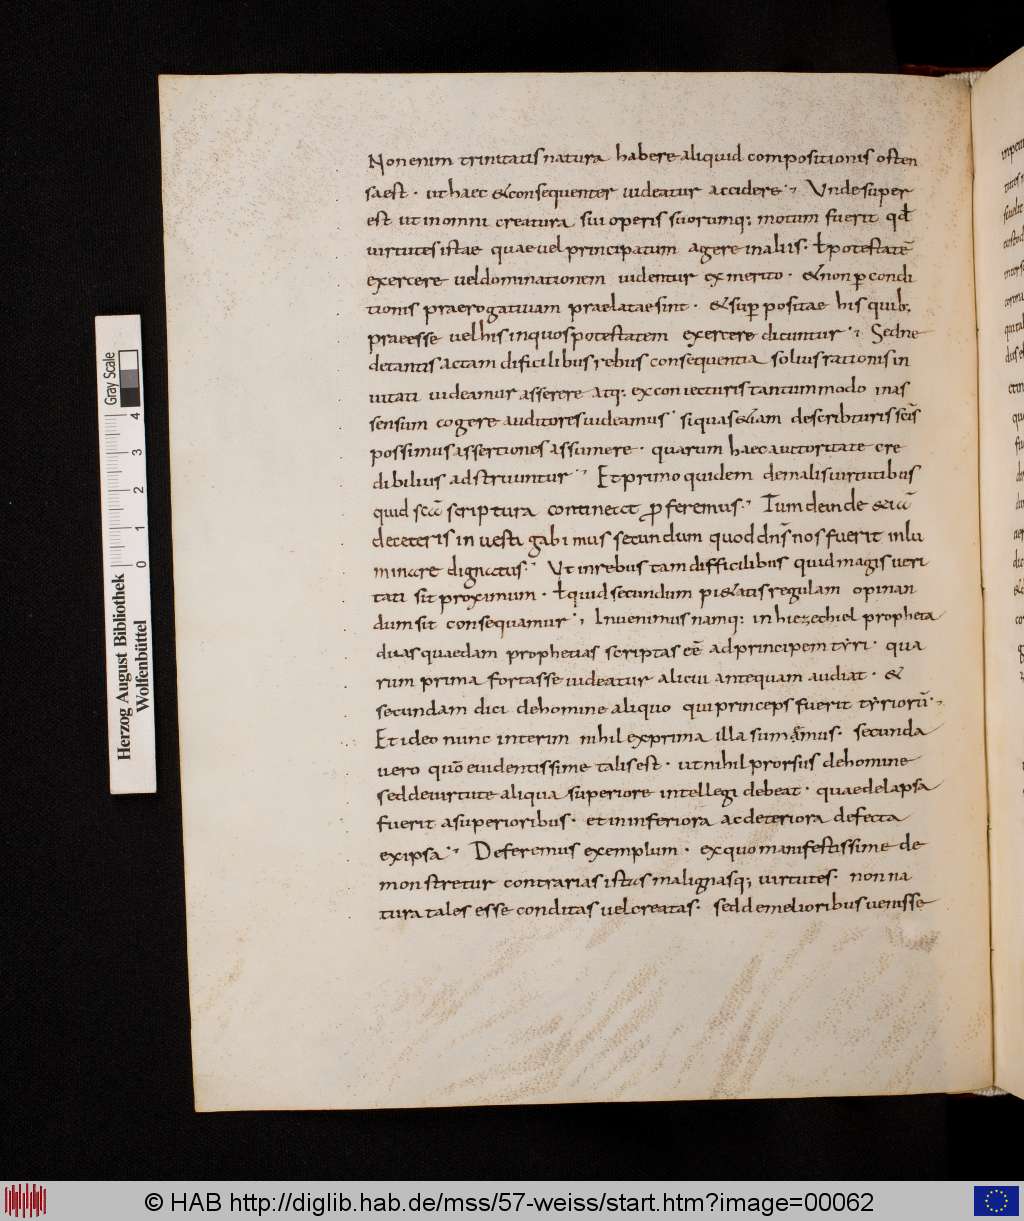 Non enim trinitatis natura habere aliquid compositionis osten
sa est · ut haec & consequenter uideatur accidere ·, Unde super
est ut in omni creatura sui operis suorumq; motum fuerit qđ
uirtutes istae quae uel principatum agere in aliis · ł potestatē
exercere uel dominationem uidentur ex merito · & non ꝑ condi
tionis praerogatiuam praelatae sint · & suꝑ positae his quib;
praeesse uel his in quos potestatem exercere dicuntur ·, Sed ne
de tantis ac tam dificilibus rebus consequentia solius rationis in
uitati uideamur asserere atq: ex coniecturis tantummodo in as
sensum cogere auditores uideamus · si quas &iam de scribturis scīs
possimus assertiones assumere · quarum haec auctoritate cre
dibilius adstruuntur ·, Et primo quidem de malis uirtutibus
quid scā scriptura contineat ꝓferemus ·, Tum deinde &iā
de ceteris inuestigabimus secundum quod dn̄s nos fuerit inlu
minare dignatus · Ut in rebus tam difficilibus quid magis ueri
tati sit proximum · ł quid secundum pi&atis regulam opinan
dum sit consequamur ·, Inuenimus namq: in hiezechiel propheta
duas quaedam prophetias scriptas eē ad principem tẏri · qua
rum prima fortasse uideatur alicui antequam audiat · &
secundam dici de homine aliquo qui princeps fuerit tẏriorū ·,
Et ideo nunc interim nihil ex prima illa sumamus · secunda
uero quō euidentissime talis est · ut nihil prorsus de homine
sed de uirtute aliqua superiore intellegi debeat · quae delapsa
fuerit a superioribus · et in inferiora ac deteriora defecta
ex ipsa ·, Deferemus exemplum · ex quo manifestissime de
monstretur contrarias istas malignasq; uirtutes · non na
tura tales esse conditas uel creatas · sed de melioribus uenisse
Herzog August Bibliothek
Wolfenbüttel
0 1 2 3 4
Gray Scale
© HAB http://diglib.hab.de/mss/57-weiss/start.htm?image=00062